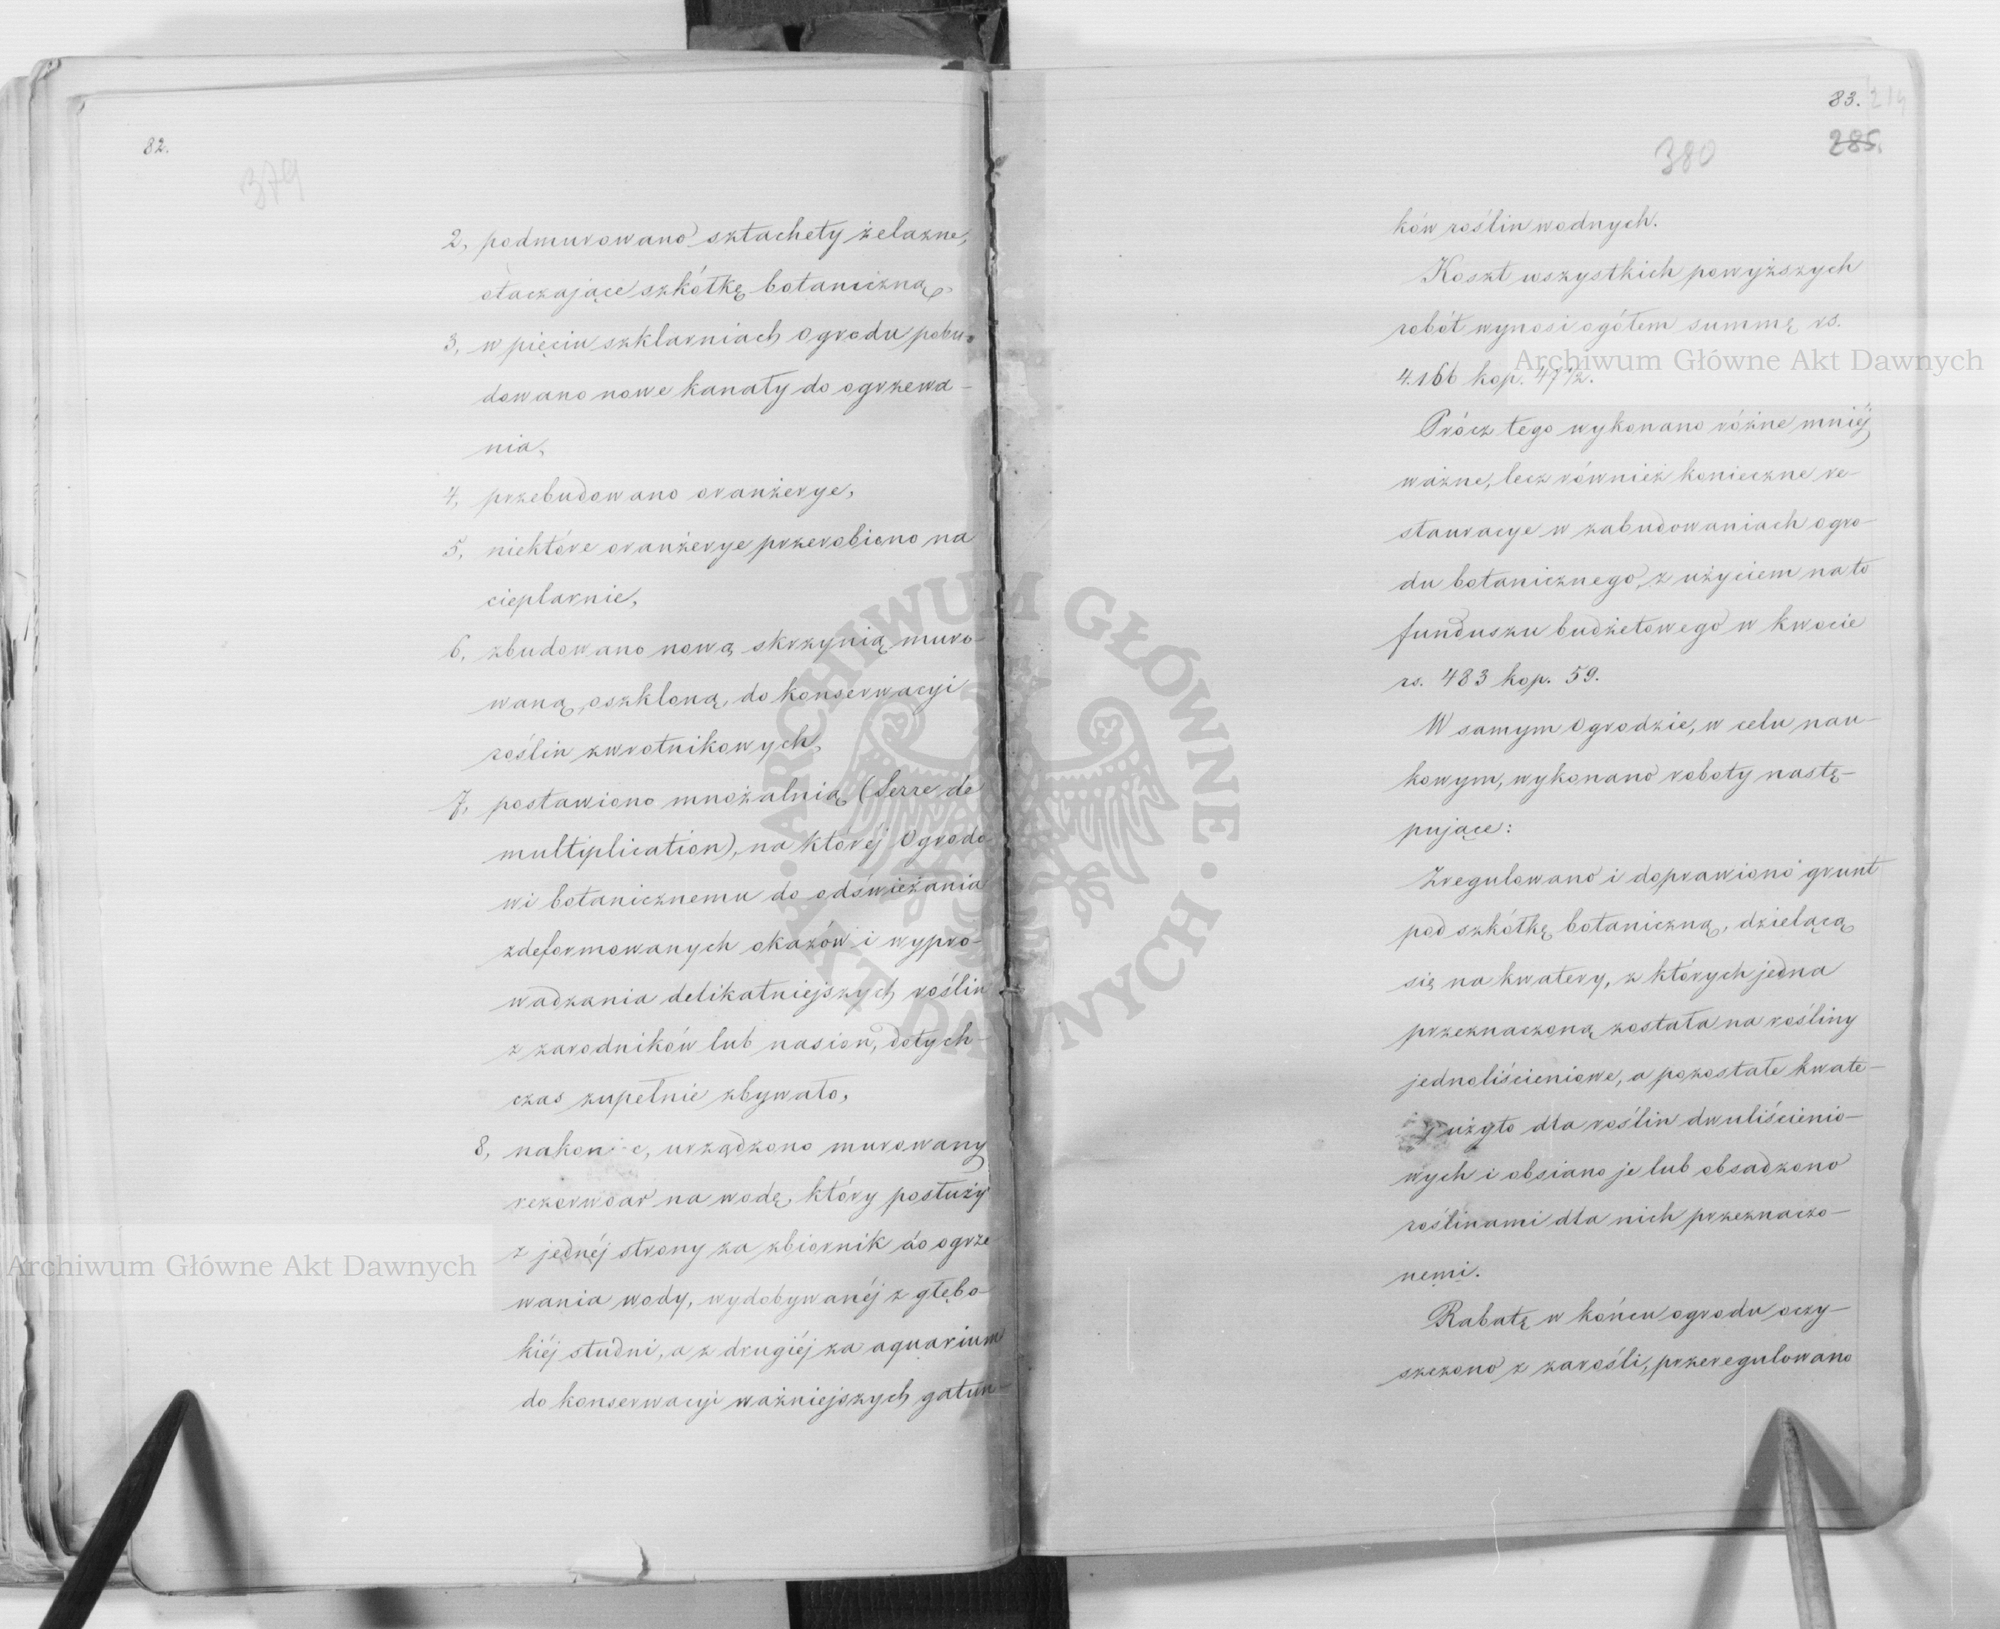 82.
379
2, podmurowano sztachety żelazne,
otaczające szkółkę botaniczną,
3, w pięciu szklarniach Ogrodu pobu-
dowano nowe kanały do ogrzewa-
nia,
4, przebudowano oranżerye,
5, niektóre oranżerye przerobiono na
cieplarnie,
6, zbudowano nową skrzynię muro-
waną, oszkloną, do konserwacyi
roślin zwrotnikowych,
7, postawiono mnożalnię (Serre de
multiplication), na której Ogrodo-
wi botanicznemu do odświeżania
zdeformowanych okazów i wypro-
wadzania delikatniejszych roślin
z zarodników lub nasion, dotych-
czas zupełnie zbywało,
8, nakoniec, urządzono murowany
rezerwoar na wodę, który posłuży
z jednéj strony za zbiornik do ogrze
wania wody, wydobywanéj z głębo-
kiéj studni, a z drugiéj za aquarium
do konserwacyi ważniejszych gatun-
83. 214
285.
380
ków roślin wodnych.
Koszt wszystkich powyższych
robót wynosi ogółem summę rs.
4.166 kop. 47 1/2.
Prócz tego wykonano różne mniéj
ważne, lecz również konieczne re-
stauracye w zabudowaniach ogro-
du botanicznego, z użyciem na to
funduszu budżetowego w kwocie
rs. 483 kop. 59.
W samym Ogrodzie, w celu nau-
kowym, wykonano roboty nastę-
pujące:
Zregulowano i doprawiono grunt
pod szkółkę botaniczną, dzielącą
się na kwatery, z których jedna
przeznaczoną została na rośliny
jednoliścieniowe, a pozostałe kwate-
ry użyto dla roślin dwuliścienio-
wych i obsiano je lub obsadzono
roślinami dla nich przeznaczo-
nemi.
Rabatę w końcu ogrodu oczy-
szczono z zarośli, przeregulowano
Archiwum Główne Akt Dawnych
Archiwum Główne Akt Dawnych
ARCHIWUM GŁÓWNE · AKT DAWNYCH ·